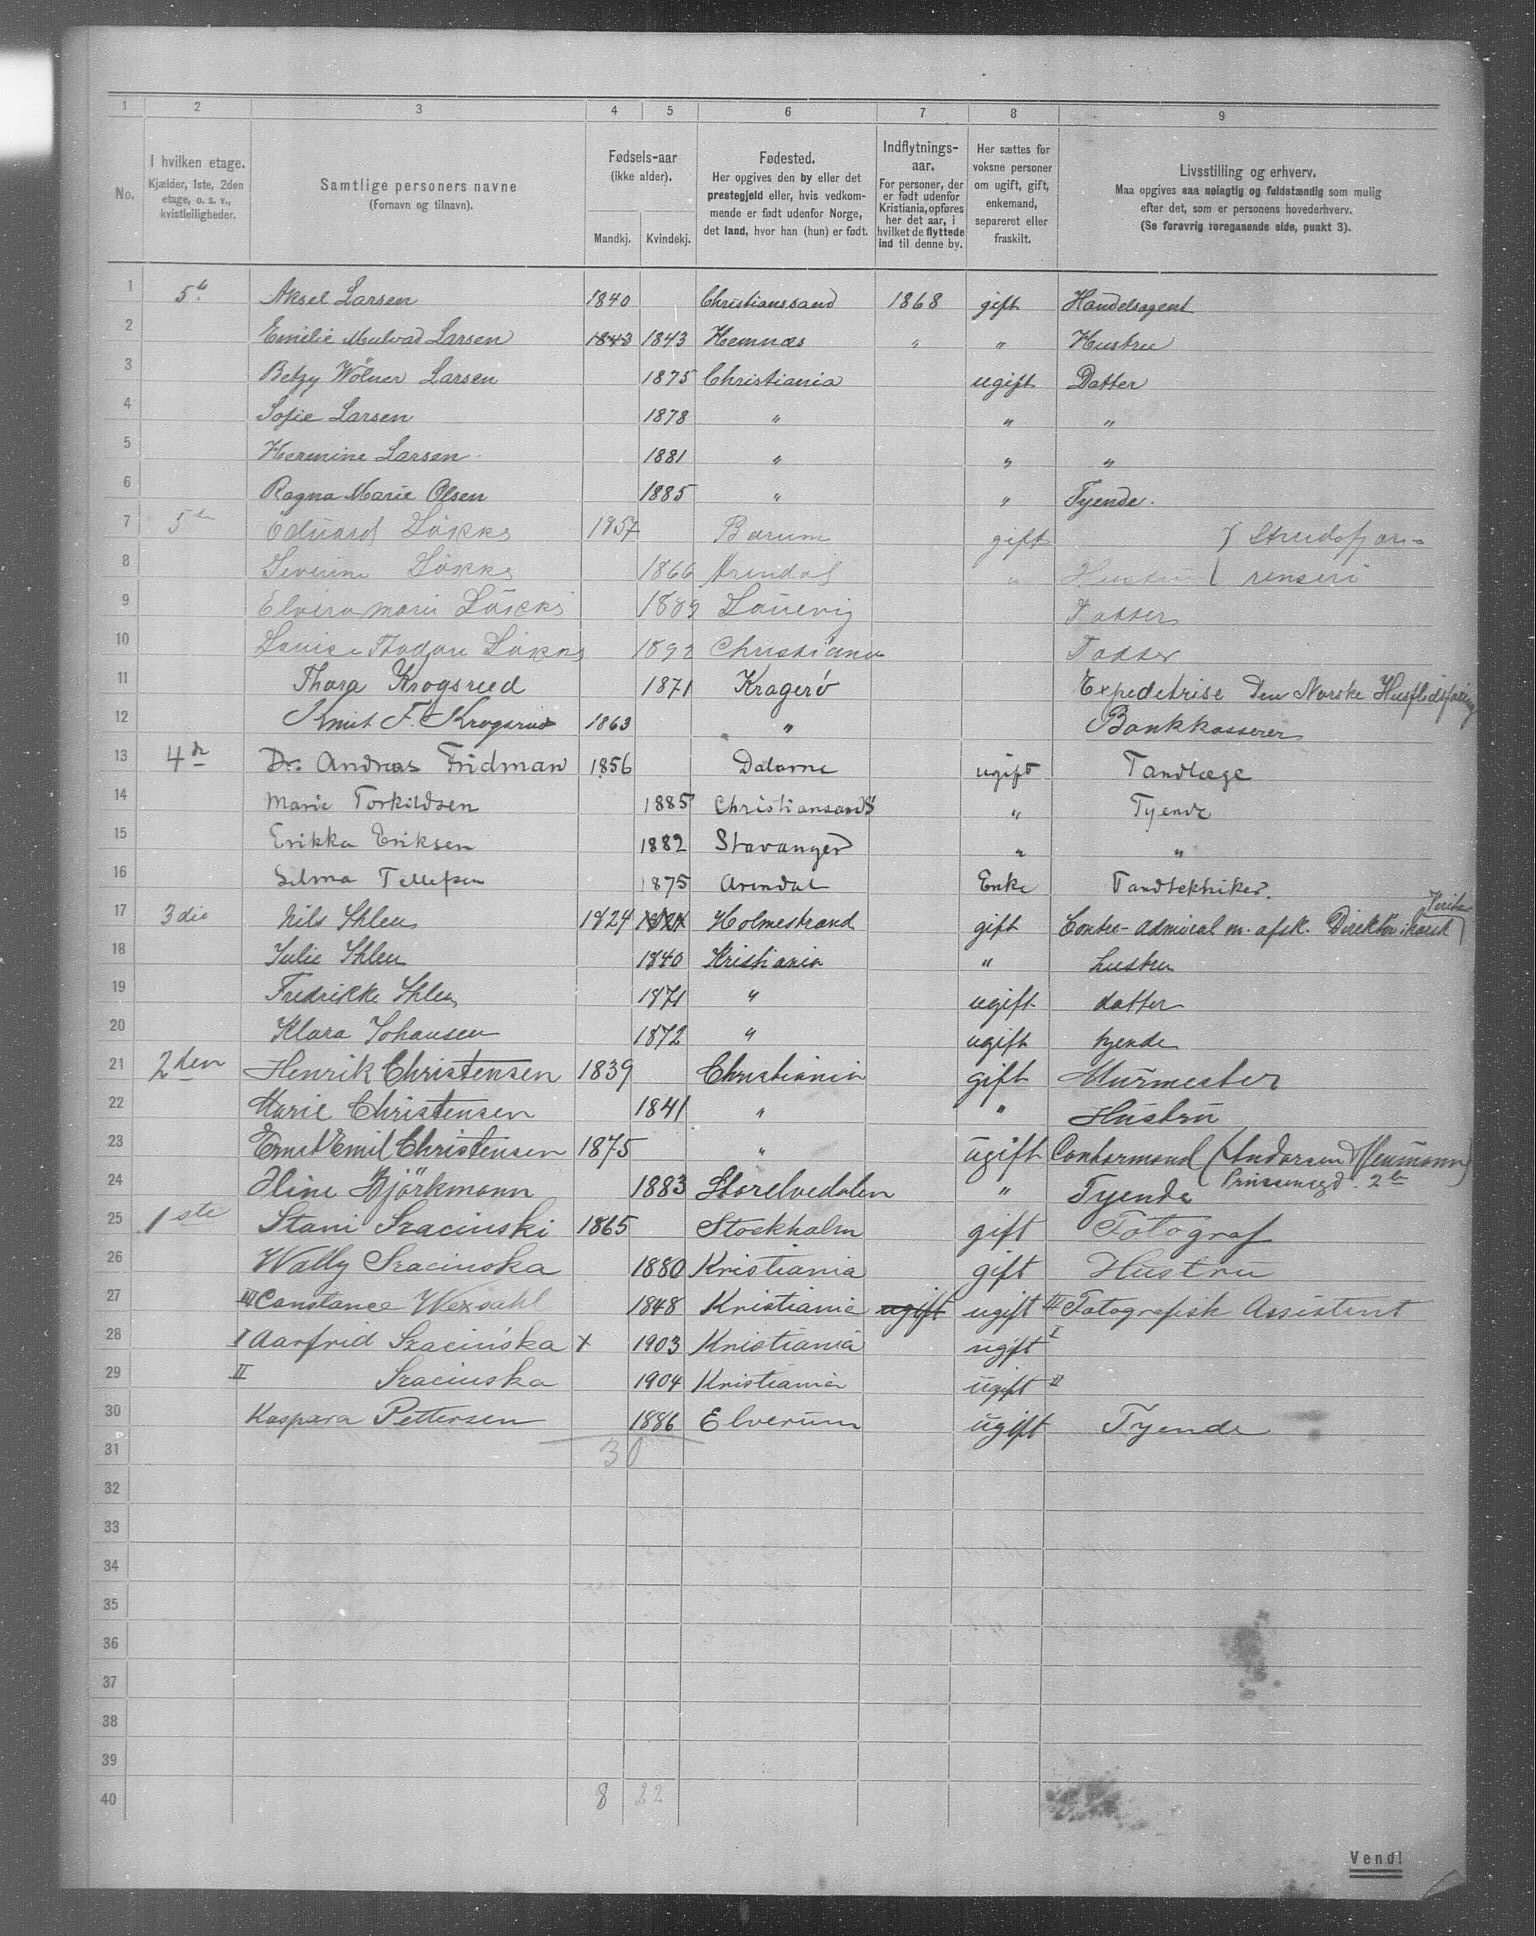 1 2 3 4 5 6 7 8 9
No.
I hvilken etage.
Kjælder, 1ste, 2den
etage, o. s. v.,
kvistleiligheder.
Samtlige personers navne
(Fornavn og tilnavn).
Fødsels-aar
(ikke alder).
Mandkj. Kvindekj.
Fødested.
Her opgives den by eller det
prestegjeld eller, hvis vedkom-
mende er født udenfor Norge,
det land, hvor han (hun) er født.
Indflytnings-
aar.
For personer, der
er født udenfor
Kristiania, opføres
her det aar, i
hvilket de flyttede
ind til denne by.
Her sættes for
voksne personer
om ugift, gift,
enkemand,
separeret eller
fraskilt.
Livsstilling og erhverv.
Maa opgives saa nøiagtig og fuldstændig som mulig
efter det, som er personens hovederhverv.
(Se forøvrig foregaaende side, punkt 3).
1 5te Aksel Larsen 1840 Christianssand 1868 gift Handelsagent
2 Emilie Mulvad Larsen 1843 1843 Hemnæs " " Hustru
3 Betzy Wölner Larsen 1875 Christiania ugift Datter
4 Sofie Larsen 1878 " " "
5 Hermine Larsen 1881 " " "
6 Ragna Marie Olsen 1885 " " Tyende.
7 5te Edvard Løkke 1857 Bærum gift } Strudsfjær-
8 Severine Løkke 1866 Arendal " Hustru renseri
9 Elvira Marie Løkke 1889 Laurvig Datter
10 Louise Thodore Løkke 1892 Christiania Datter
11 Thora Krogsrud 1871 Kragerö Expeditrise Den Norske Husflidsforening
12 Knut F. Krogsrud 1863 " Bankkasserer
13 4de Dr. Andreas Fridman 1856 Dalarne ugift Tandlæge
14 Marie Torkildsen 1885 Christiansands " Tyende
15 Erikka Eriksen 1882 Stavanger " "
16 Selma Tellefsen 1875 Arendal Enke Tandtekniker.
17 3die Nils Ihlen 1824 1824 Holmestrand gift Contre-Admiral m. afsk. Direktör i norsk Veritas
18 Julie Ihlen 1840 Kristiania " hustru
19 Fredrikke Ihlen 1871 " ugift datter
20 Klara Johansen 1872 " ugift tyende
21 2den Henrik Christensen 1839 Christiania gift Murmester
22 Marie Christensen 1841 " " Hustru
23 Ernst Emil Christensen 1875 " ugift Contormand (Andersen & Neumann)
24 Hine Björkmann 1883 Storelvedalen " Tyende Prinsensgd. 2b
25 1ste Stani Szacinski 1865 Stockholm gift Fotograf
26 Wally Szacinska 1880 Kristiania gift Hustru
27 III Constance Wexsahl 1848 Kristiania ugift ugift III Fotografisk Assistent
28 I Aarfrid Szacińska x 1903 Kristiania ugift I
29 II Szacinska 1904 Kristiania ugift II
30 Kaspara Pettersen 1886 Elverum ugift Tyende
31 30
32
33
34
35
36
37
38
39
40 8 22
Vend!